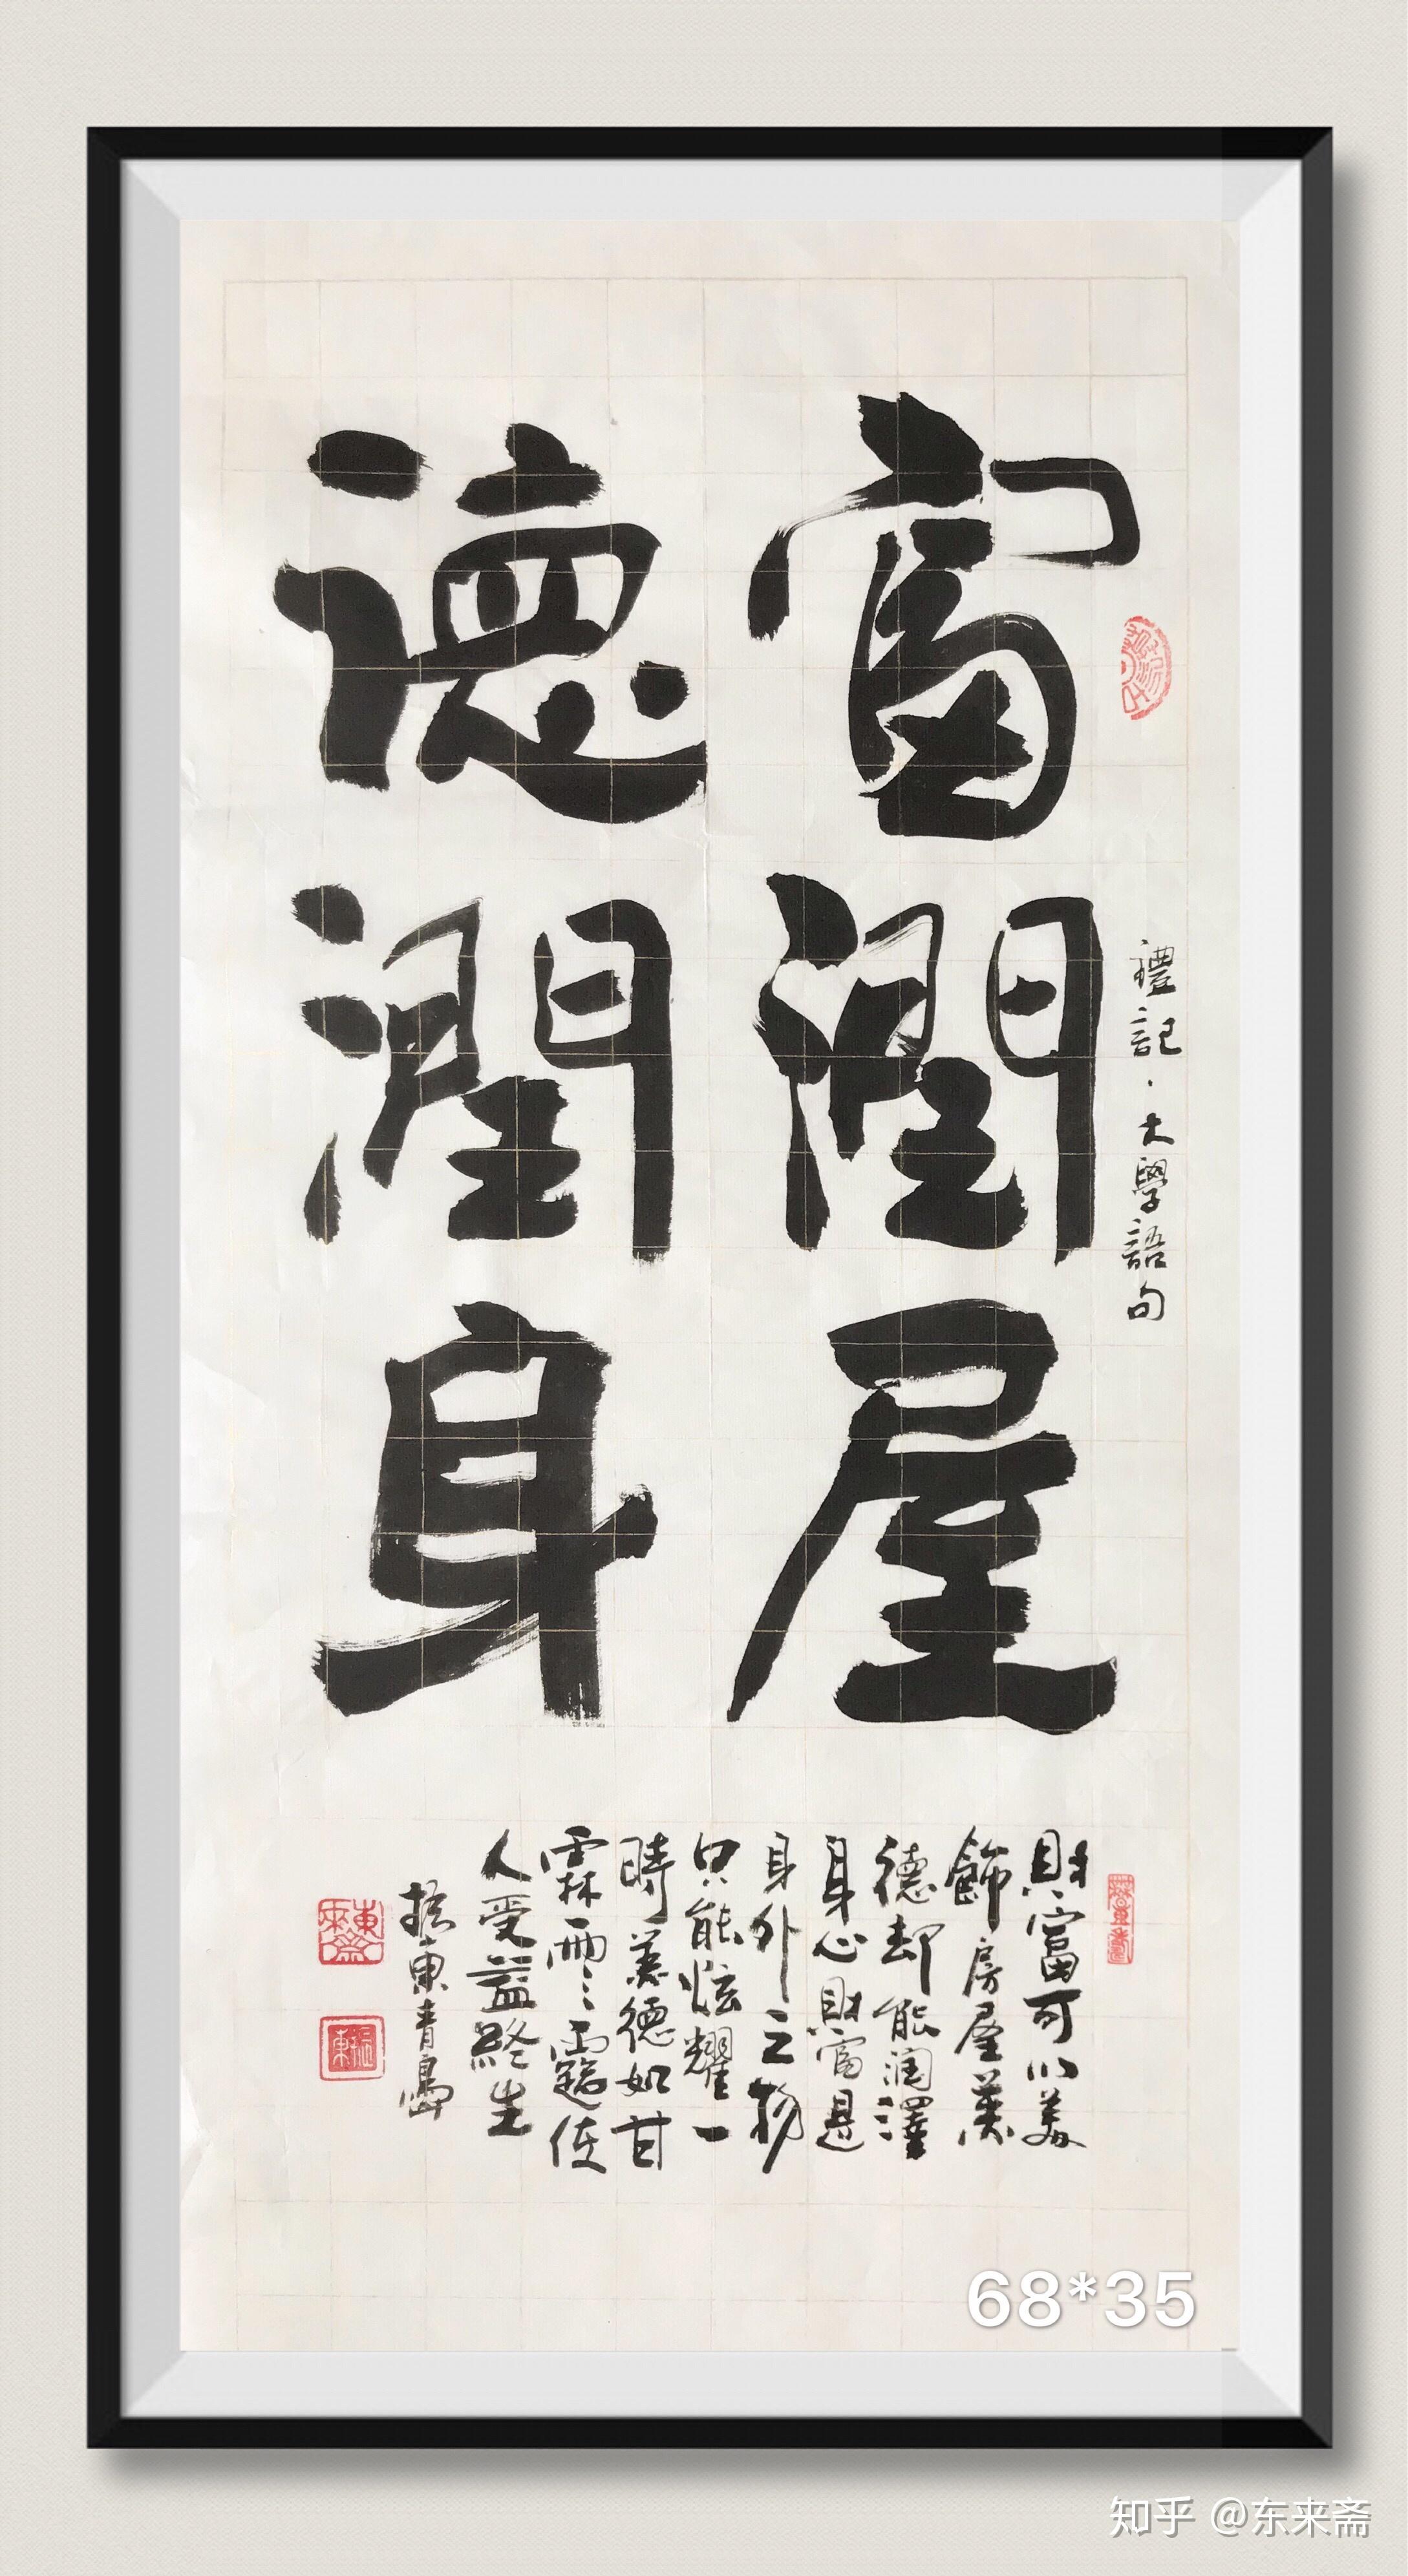 富潤屋
德潤身
禮記·大學語句
財富可以美
飾房屋美
德却能润澤
身心財富是
身外之物
只能炫耀一
時美德如甘
霖雨三露使
人受益終生
東青島
東來齋
68*35
知乎 @东来斋